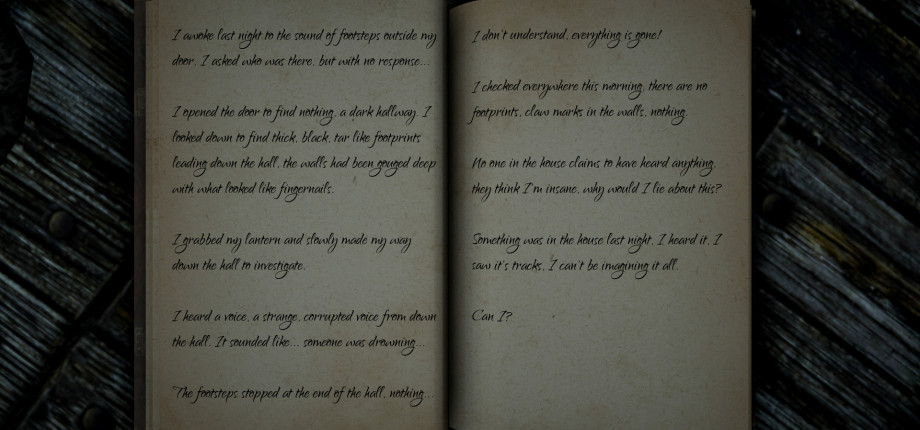 I awoke last night to the sound of footsteps outside my
door. I asked who was there, but with no response...
I opened the door to find nothing, a dark hallway. I
looked down to find thick, black, tar like footprints
leading down the hall, the walls had been gouged deep
with what looked like fingernails.
I grabbed my lantern and slowly made my way
down the hall to investigate.
I heard a voice, a strange, corrupted voice from down
the hall. It sounded like... someone was drowning...
The footsteps stopped at the end of the hall, nothing...
I don't understand, everything is gone!
I checked everywhere this morning, there are no
footprints, claw marks in the walls, nothing.
No one in the house claims to have heard anything,
they think I'm insane, why would I lie about this?
Something was in the house last night, I heard it, I
saw it's tracks, I can't be imagining it all.
Can I?